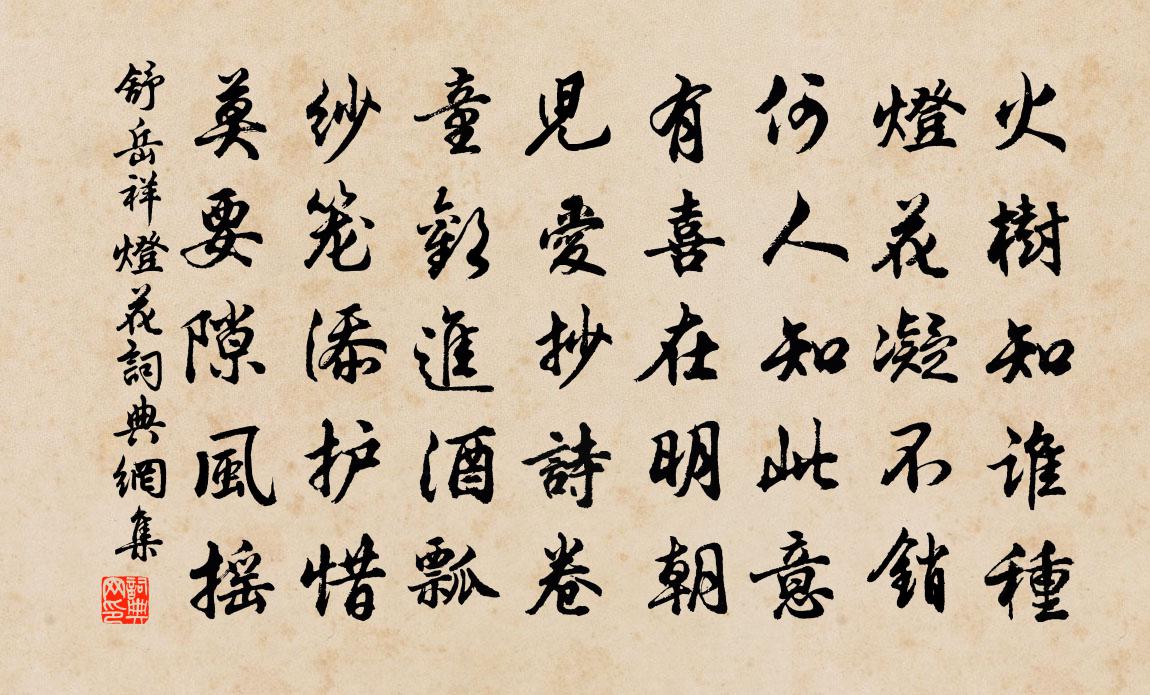 火樹知誰種
燈花凝不銷
何人知此意
有喜在明朝
児愛抄詩卷
童勸進酒瓢
紗笼添护惜
莫要隙風摇
舒岳祥燈花詞典網集
詞典网印